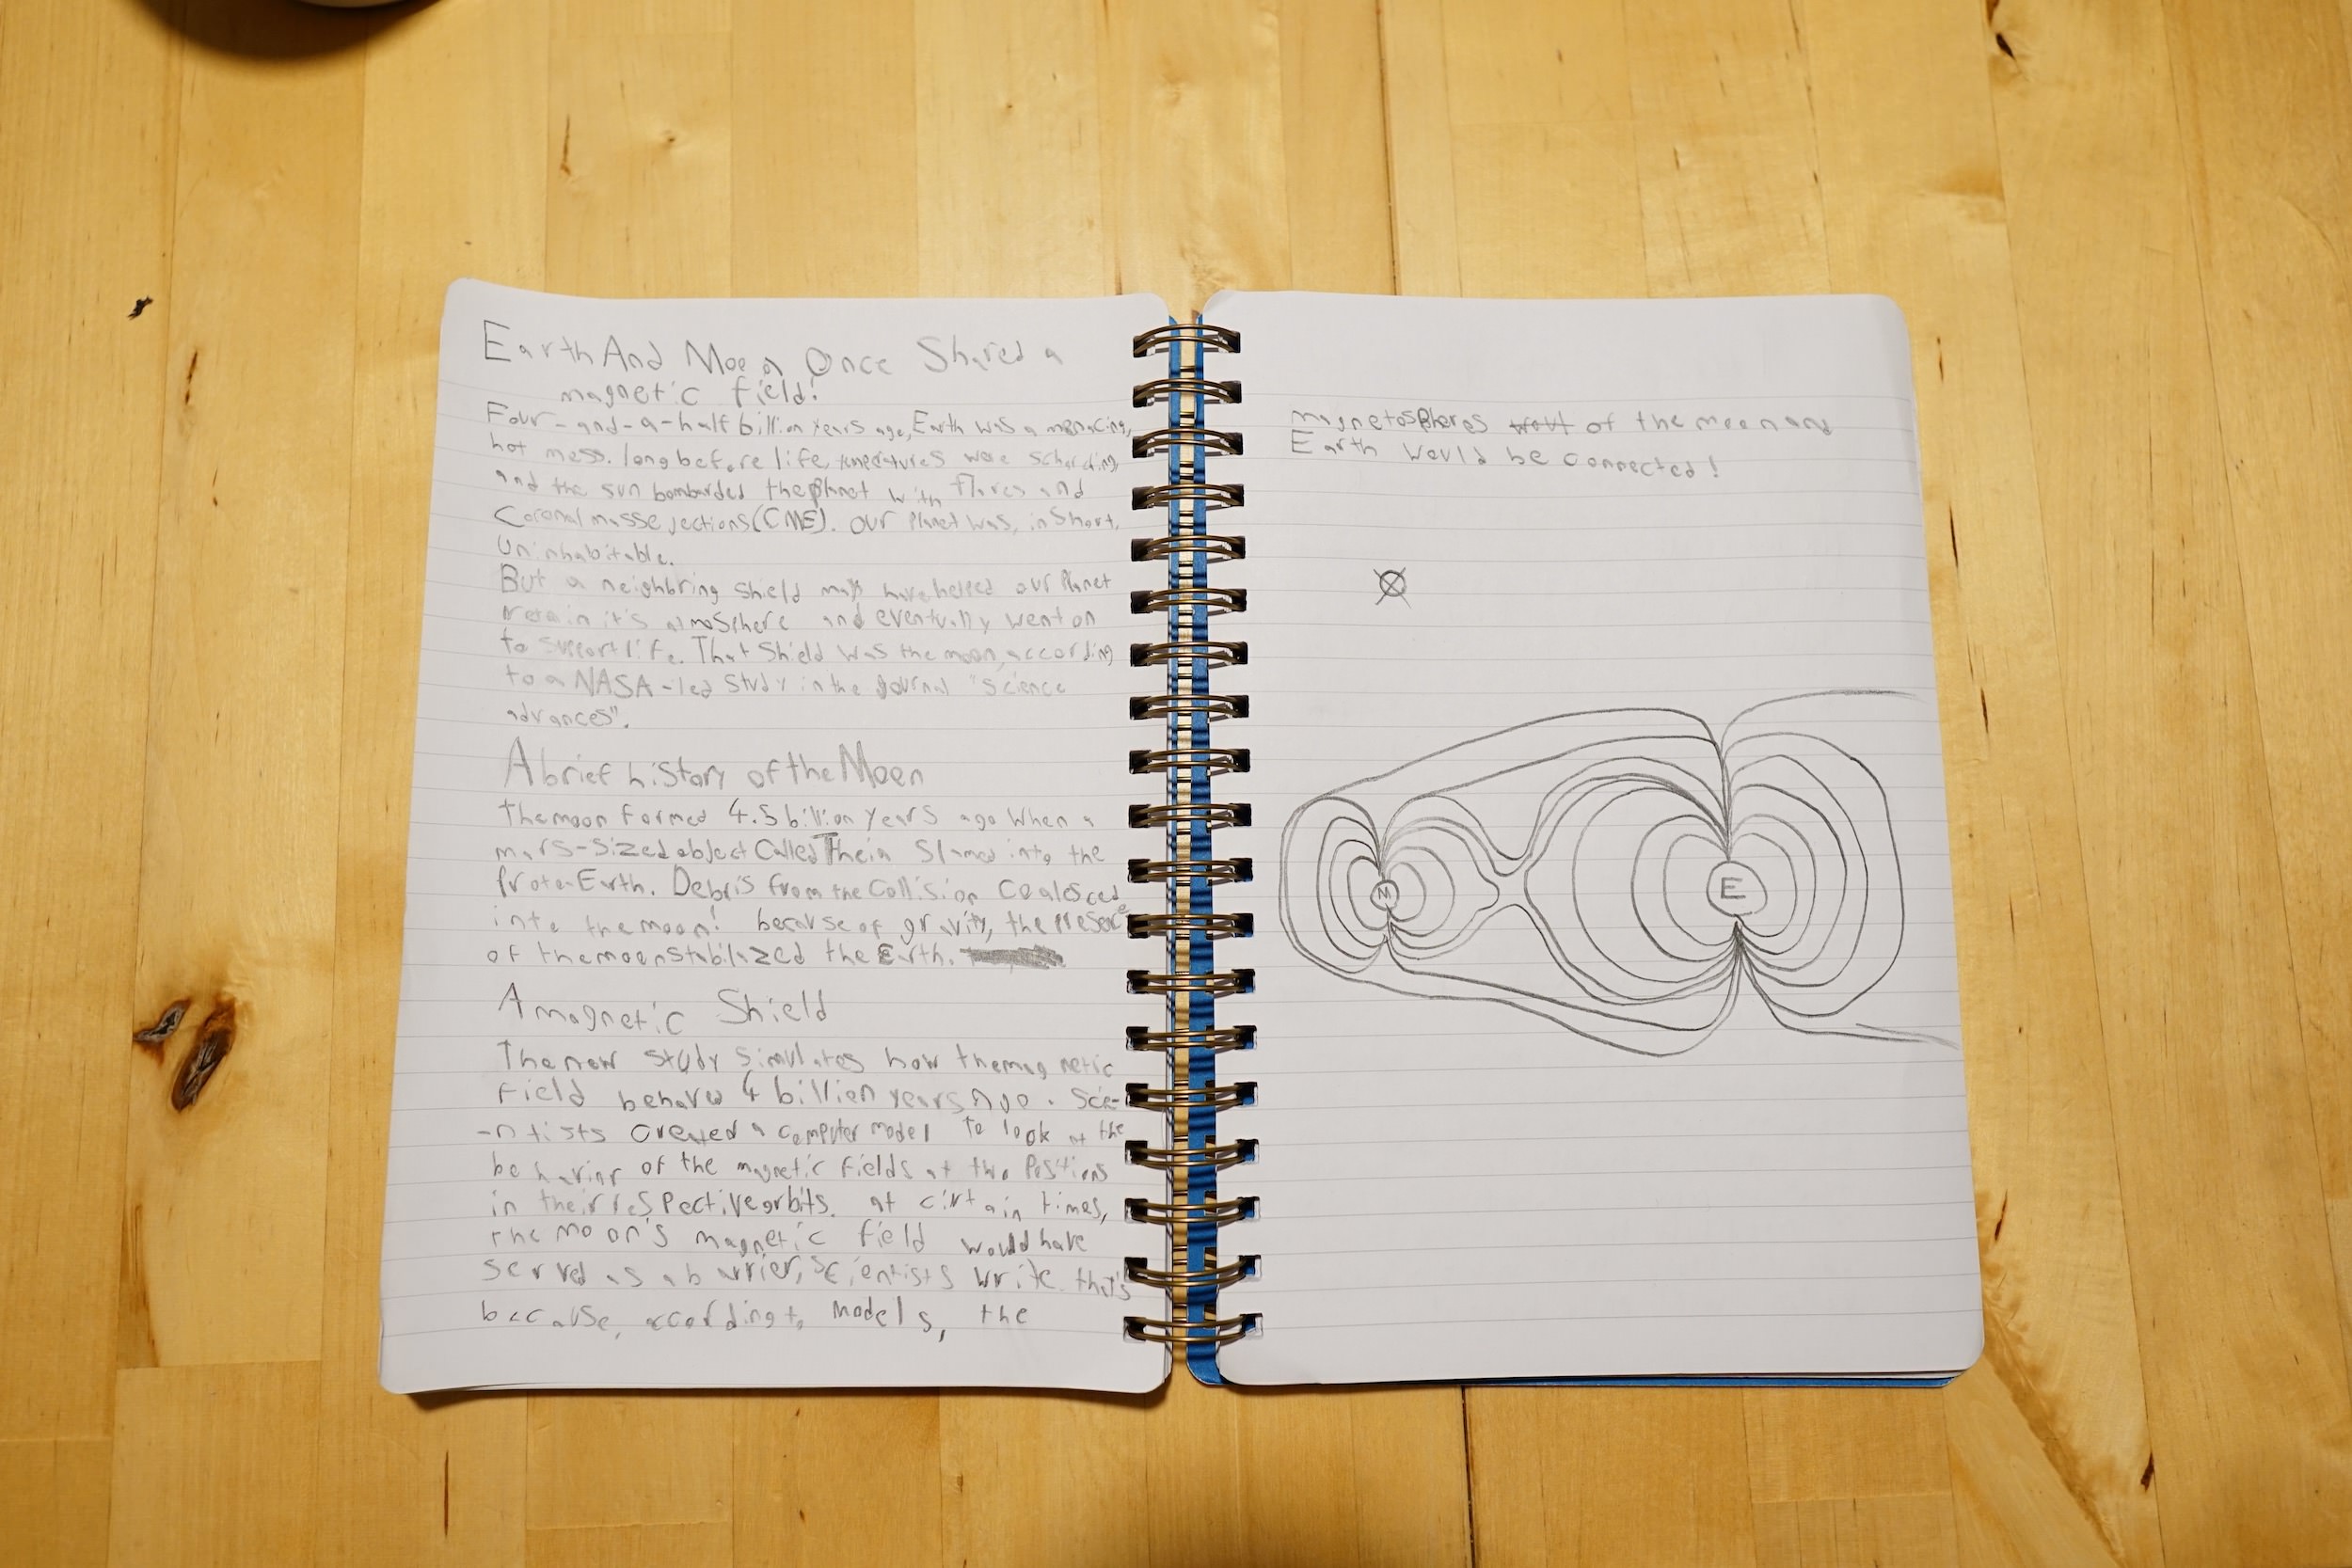 Earth And Moon Once Shared a
magnetic field!
Four-and-a-half billion years ago, Earth was a menacing,
hot mess. long before life, temperatures were
and the sun bombarded the planet with flares and
Coronal mass ejections (CME). our planet was, in short,
uninhabitable.
But a neighbring shield may have helped our planet
retain it's atmosphere and eventually went on
to support life. That shield was the moon, according
to a NASA-led study in the journal "science
advances".
A brief history of the Moon
the moon formed 4.5 billion years ago when a
mars-sized object called Theia slamed into the
proto-Earth. Debris from the collision
into the moon! because of gravity, the
of the moon stabilazed the Earth.
A magnetic Shield
The new study simulates how the magnetic
field behaved 4 billion years Ago. Scie-
-ntists created a computer model to look at the
behavior of the magnetic fields at two positions
in their respective orbits. at cirtain times,
the moon's magnetic field would have
served as a barrier, scientists write. that's
because, according to models, the
magnetospheres of the moon and
Earth would be connected!
M
E